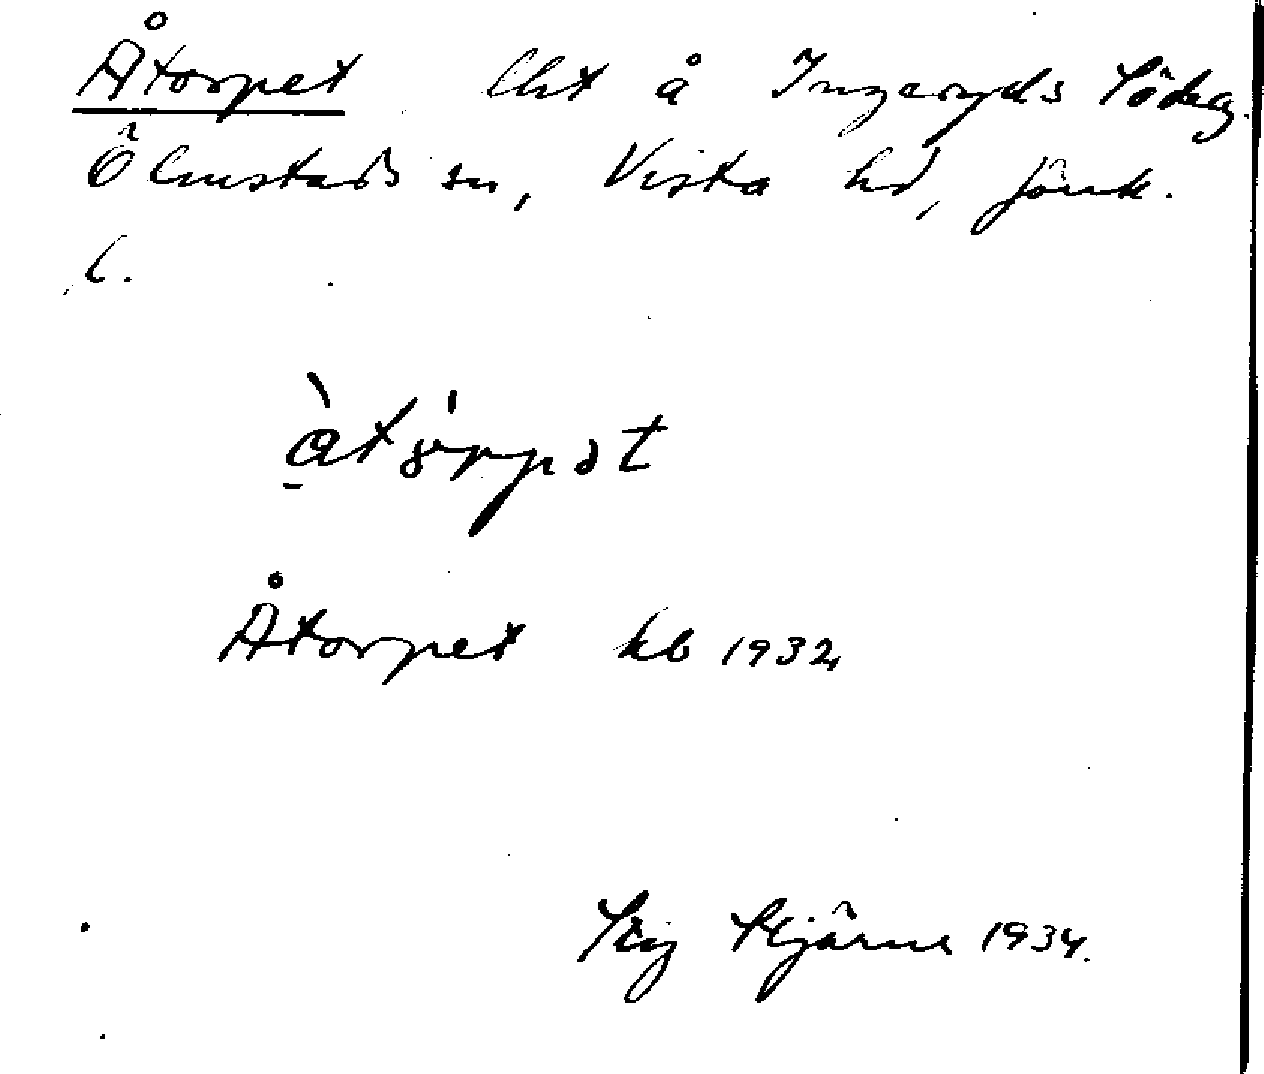 Åtorpet lht å Ingaryds Söderg.
Ölmstads sn, Vista hd, Jönk.
l.
Åtorpet kb 1932
Stig Stjärne 1934.